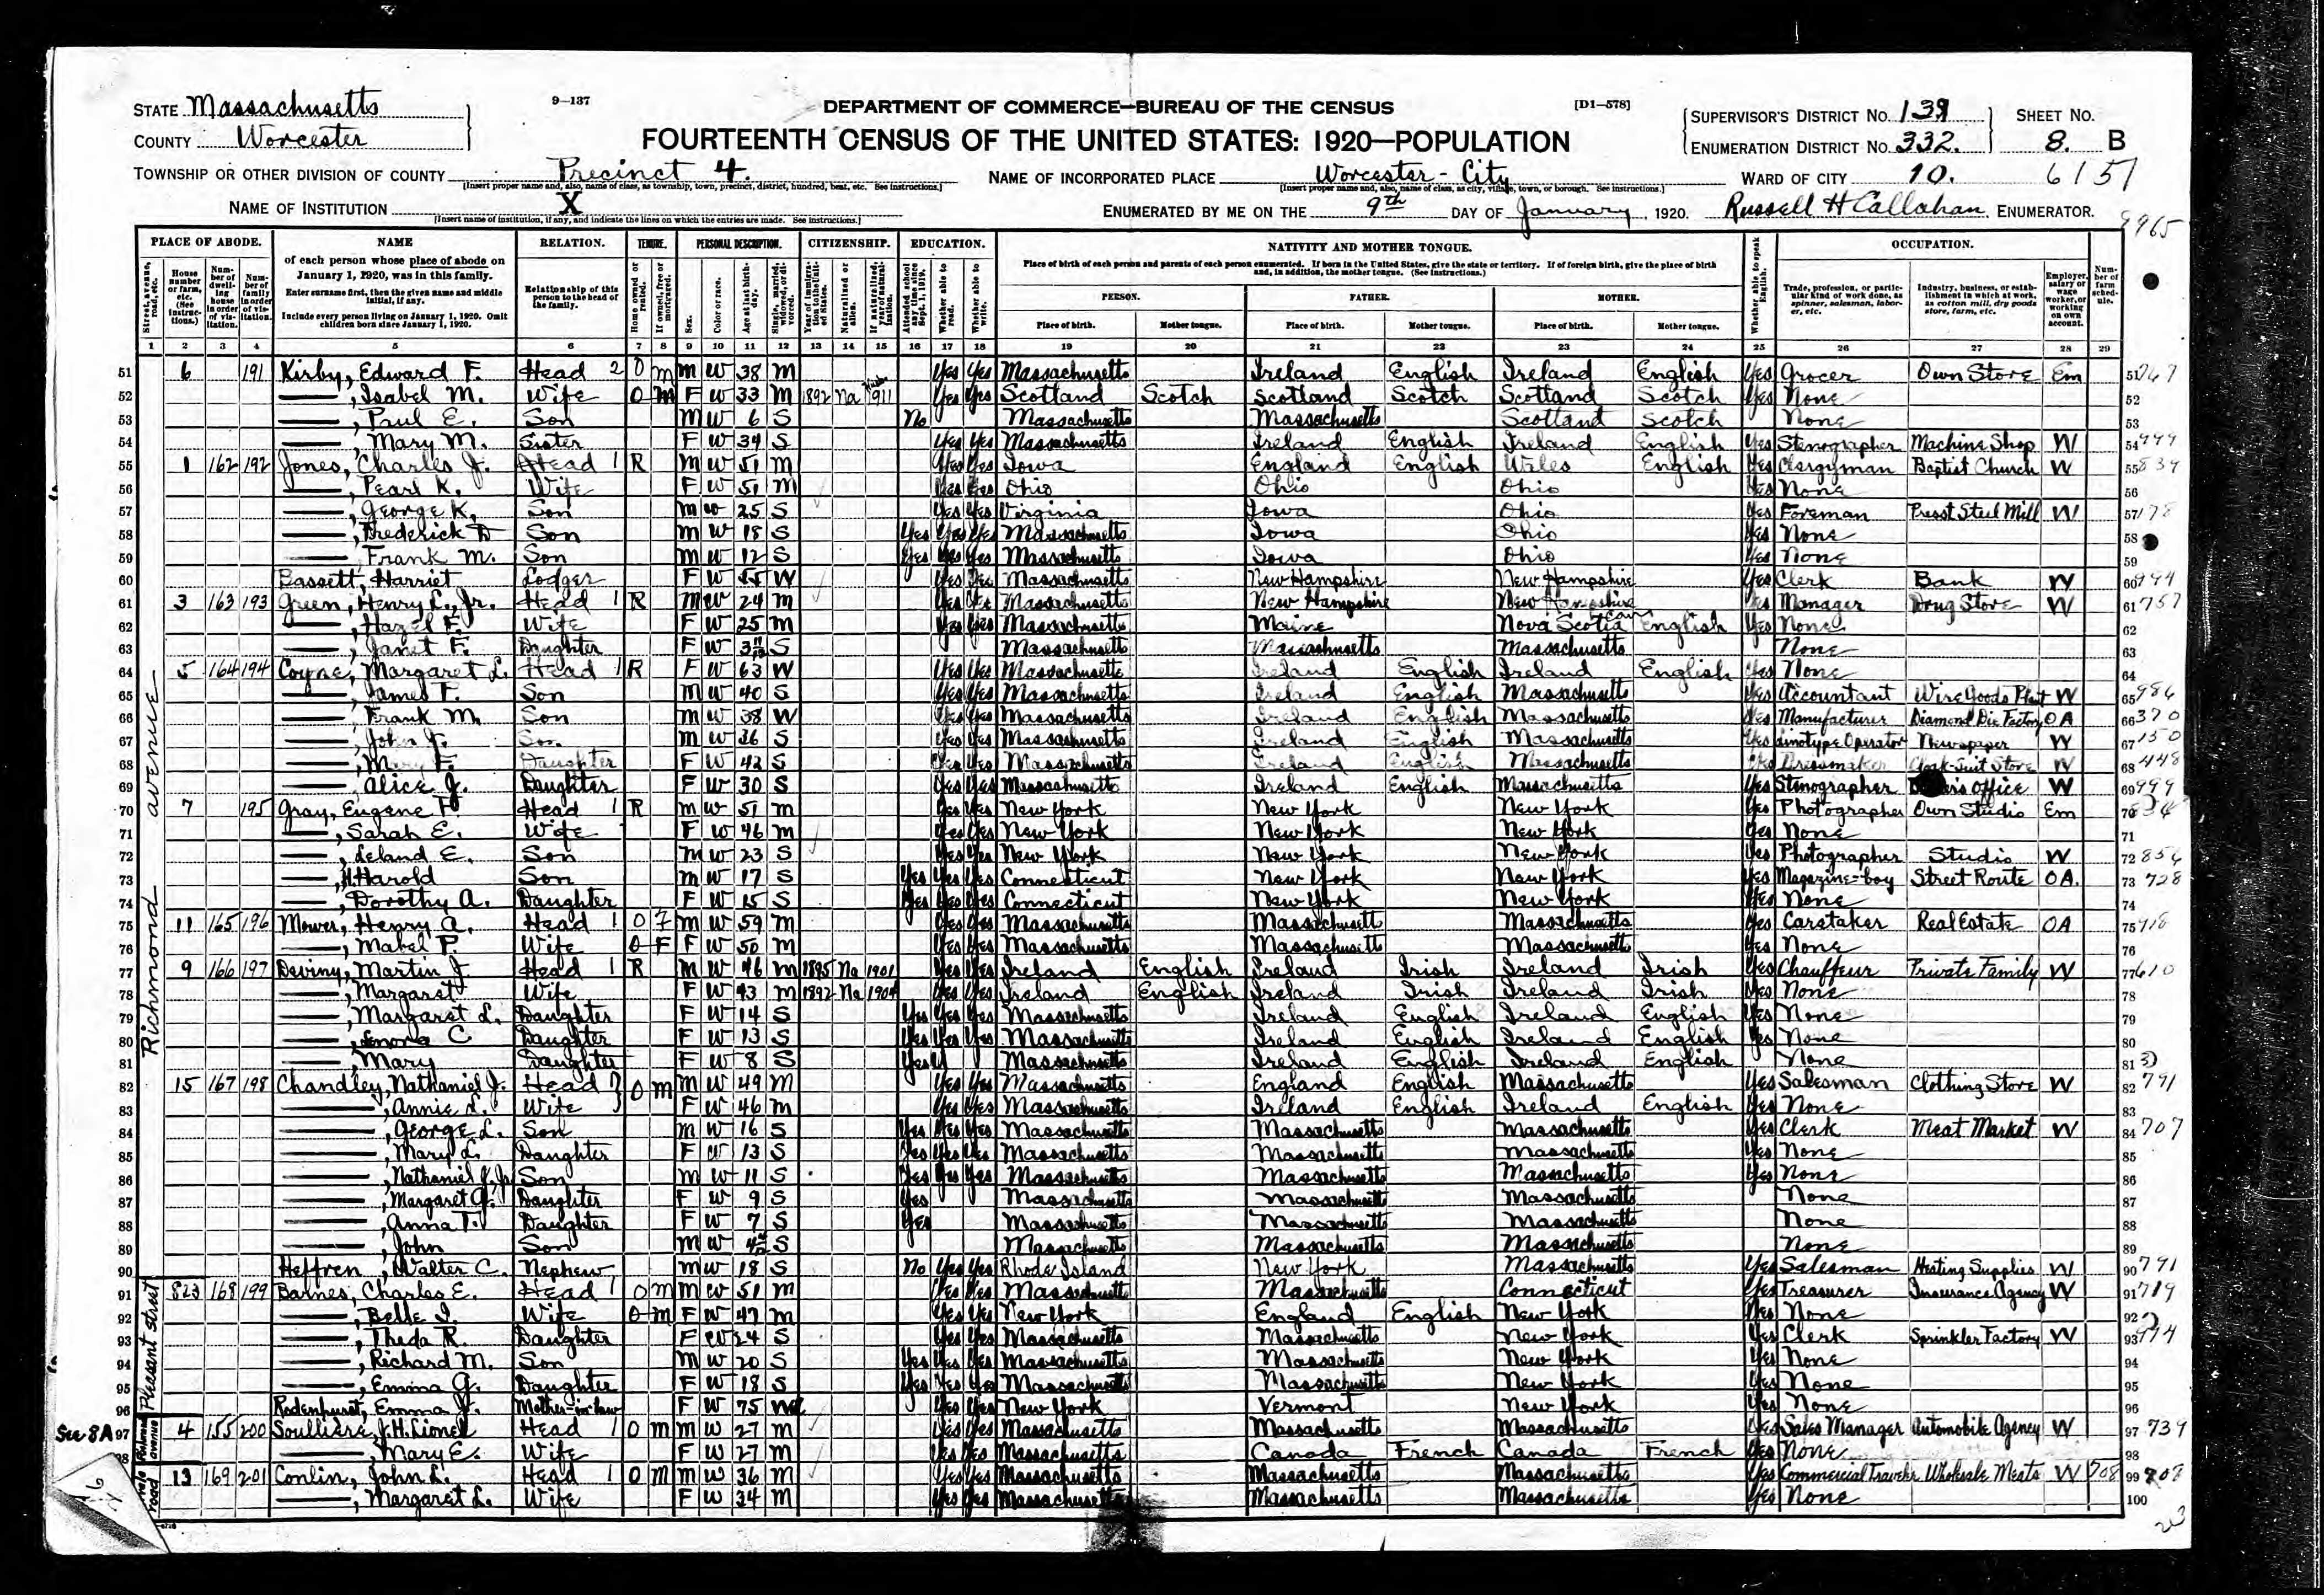 STATE Massachusetts 9—137 DEPARTMENT OF COMMERCE—BUREAU OF THE CENSUS [D1—578]
COUNTY Worcester FOURTEENTH CENSUS OF THE UNITED STATES: 1920—POPULATION
SUPERVISOR'S DISTRICT No. 139 SHEET No.
ENUMERATION DISTRICT No. 332. 8. B
TOWNSHIP OR OTHER DIVISION OF COUNTY Precinct 4. NAME OF INCORPORATED PLACE Worcester-City WARD OF CITY 10. 6151
[Insert proper name and, also, name of class, as township, town, precinct, district, hundred, beat, etc. See instructions.] [Insert proper name and, also, name of class, as city, village, town, or borough. See instructions.]
NAME OF INSTITUTION X ENUMERATED BY ME ON THE 9th DAY OF January, 1920. Russell H Callahan ENUMERATOR.
[Insert name of institution, if any, and indicate the lines on which the entries are made. See instructions.]
PLACE OF ABODE. NAME RELATION. TENURE. PERSONAL DESCRIPTION. CITIZENSHIP. EDUCATION. NATIVITY AND MOTHER TONGUE. OCCUPATION.
of each person whose place of abode on January 1, 1920, was in this family.
Enter surname first, then the given name and middle initial, if any.
Include every person living on January 1, 1920. Omit children born since January 1, 1920.
Relationship of this person to the head of the family.
Place of birth of each person and parents of each person enumerated. If born in the United States, give the state or territory. If of foreign birth, give the place of birth and, in addition, the mother tongue. (See instructions.)
PERSON. FATHER. MOTHER.
Place of birth. Mother tongue. Place of birth. Mother tongue. Place of birth. Mother tongue.
1 2 3 4 5 6 7 8 9 10 11 12 13 14 15 16 17 18 19 20 21 22 23 24 25 26 27 28 29
51 6 191 Kirby, Edward F. Head 2 O m m W 38 m Yes Yes Massachusetts Ireland English Ireland English Yes Grocer Own Store Em
52 —, Isabel M. Wife O m F W 33 M 1892 Na 1911 Yes Yes Scotland Scotch Scotland Scotch Scotland Scotch Yes None
53 —, Paul E. Son M W 6 S No Massachusetts Massachusetts Scotland Scotch None
54 —, Mary M. Sister F W 34 S Yes Yes Massachusetts Ireland English Ireland English Yes Stenographer Machine Shop W
55 1 162 192 Jones, Charles J. Head 1 R m W 51 m Yes Yes Iowa England English Wales English Yes Clergyman Baptist Church W
56 —, Pearl K. Wife F W 51 M Yes Yes Ohio Ohio Ohio Yes None
57 —, George K. Son m w 25 S Yes Yes Virginia Iowa Ohio Yes Foreman Presst Steel Mill W
58 —, Frederick D Son m W 18 S Yes Yes Yes Massachusetts Iowa Ohio Yes None
59 —, Frank M. Son m W 12 S Yes Yes Yes Massachusetts Iowa Ohio Yes None
60 Bassett, Harriet Lodger F W 55 W Yes Yes Massachusetts New Hampshire New Hampshire Yes Clerk Bank W
61 3 163 193 Green, Henry L., Jr. Head 1 R m W 24 m Yes Yes Massachusetts New Hampshire New Hampshire Yes Manager Drug Store W
62 —, Hazel F. Wife F W 25 m Yes Yes Massachusetts Maine Nova Scotia Can English Yes None
63 —, Janet F. Daughter F W 3 S Massachusetts Massachusetts Massachusetts None
64 5 164 194 Coyne, Margaret L. Head 1 R F W 63 W Yes Yes Massachusetts Ireland English Ireland English Yes None
65 —, James F. Son m W 40 S Yes Yes Massachusetts Ireland English Massachusetts Yes Accountant Wire Goods Plant W
66 —, Frank M. Son m W 38 W Yes Yes Massachusetts Ireland English Massachusetts Yes Manufacturer Diamond Die Factory OA
67 —, John J. Son m W 36 S Yes Yes Massachusetts Ireland English Massachusetts Yes Linotype Operator Newspaper W
68 —, Mary F. Daughter F W 42 S Yes Yes Massachusetts Ireland English Massachusetts Yes Dressmaker Cloak-Suit Store W
69 —, Alice J. Daughter F W 30 S Yes Yes Massachusetts Ireland English Massachusetts Yes Stenographer office W
70 7 195 Gray, Eugene F Head 1 R m W 51 m Yes Yes New York New York New York Yes Photographer Own Studio Em
71 —, Sarah E. Wife F W 46 m Yes Yes New York New York New York Yes None
72 —, Leland E. Son m W 23 S Yes Yes New York New York New York Yes Photographer Studio W
73 —, H. Harold Son m W 17 S Yes Yes Yes Connecticut New York New York Yes Magazine-boy Street Route OA.
74 —, Dorothy A. Daughter F W 15 S Yes Yes Yes Connecticut New York New York Yes None
75 11 165 196 Mower, Henry A. Head 1 O F m W 59 m Yes Yes Massachusetts Massachusetts Massachusetts Yes Caretaker Real Estate OA
76 —, Mabel P. Wife O F F W 50 m Yes Yes Massachusetts Massachusetts Massachusetts Yes None
77 9 166 197 Deviny, Martin J. Head 1 R m W 46 m 1895 Na 1901 Yes Yes Ireland English Ireland Irish Ireland Irish Yes Chauffeur Private Family W
78 —, Margaret Wife F W 43 m 1892 Na 1904 Yes Yes Ireland English Ireland Irish Ireland Irish Yes None
79 —, Margaret L. Daughter F W 14 S Yes Yes Yes Massachusetts Ireland English Ireland English Yes None
80 —, C Daughter F W 13 S Yes Yes Yes Massachusetts Ireland English Ireland English Yes None
81 —, Mary Daughter F W 8 S Yes Massachusetts Ireland English Ireland English None
82 15 167 198 Chandley, Nathaniel J. Head O m m W 49 m Yes Yes Massachusetts England English Massachusetts Yes Salesman Clothing Store W
83 —, Annie L. Wife F W 46 m Yes Yes Massachusetts Ireland English Ireland English Yes None
84 —, George L. Son m W 16 S Yes Yes Yes Massachusetts Massachusetts Massachusetts Yes Clerk Meat Market W
85 —, Mary L. Daughter F W 13 S Yes Yes Yes Massachusetts Massachusetts Massachusetts Yes None
86 —, Nathaniel J. Jr Son m W 11 S Yes Yes Yes Massachusetts Massachusetts Massachusetts Yes None
87 —, Margaret G. Daughter F W 9 S Yes Massachusetts Massachusetts Massachusetts None
88 —, Anna T. Daughter F W 7 S Yes Massachusetts Massachusetts Massachusetts None
89 —, John Son m W 4 S Massachusetts Massachusetts Massachusetts None
90 Heffren, Walter C. Nephew m W 18 S No Yes Yes Rhode Island New York Massachusetts Yes Salesman Heating Supplies W
91 823 168 199 Barnes, Charles E. Head 1 O m m W 51 m Yes Yes Massachusetts Massachusetts Connecticut Yes Treasurer Insurance Agency W
92 —, Belle I. Wife O m F W 47 m Yes Yes New York England English New York Yes None
93 —, Theda R. Daughter F W 24 S Yes Yes Massachusetts Massachusetts New York Yes Clerk Sprinkler Factory W
94 —, Richard M. Son m W 20 S Yes Yes Yes Massachusetts Massachusetts New York Yes None
95 —, Emma G. Daughter F W 18 S Yes Yes Yes Massachusetts Massachusetts New York Yes None
96 Rodenhurst, Emma J. Mother-in-law F W 75 Wd Yes Yes New York Vermont New York Yes None
See 8A 97 4 155 200 Soulliere, J.H. Lionel Head 1 O m m W 27 m Yes Yes Massachusetts Massachusetts Massachusetts Yes Sales Manager Automobile Agency W 739
98 —, Mary E. Wife F W 27 m Yes Yes Massachusetts Canada French Canada French Yes None
99 13 169 201 Conlin, John L. Head 1 O m m W 36 m Yes Yes Massachusetts Massachusetts Massachusetts Yes Commercial Traveler Wholesale Meats W 708
100 —, Margaret L. Wife F W 34 m Yes Yes Massachusetts Massachusetts Massachusetts Yes None
Richmond avenue
Pleasant street